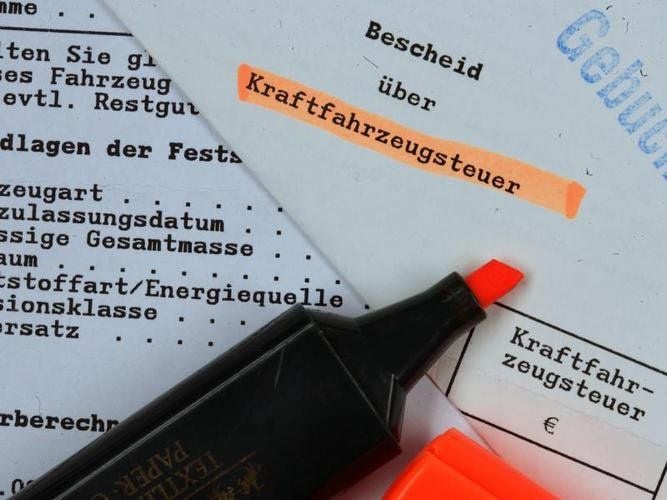 mme .
lten Sie gl
ses Fahrzeug
evtl. Restgut
dlagen der Fests
zeugart . . . . . .
zulassungsdatum . . .
ssige Gesamtmasse . .
aum . . . . . . . . .
tstoffart/Energiequelle .
sionsklasse . . . .
ersatz . . . .
rberechn
Bescheid
über
Kraftfahrzeugsteuer
Gebuch
Kraftfahr-
zeugsteuer
€
TEXTIL
PAPER-